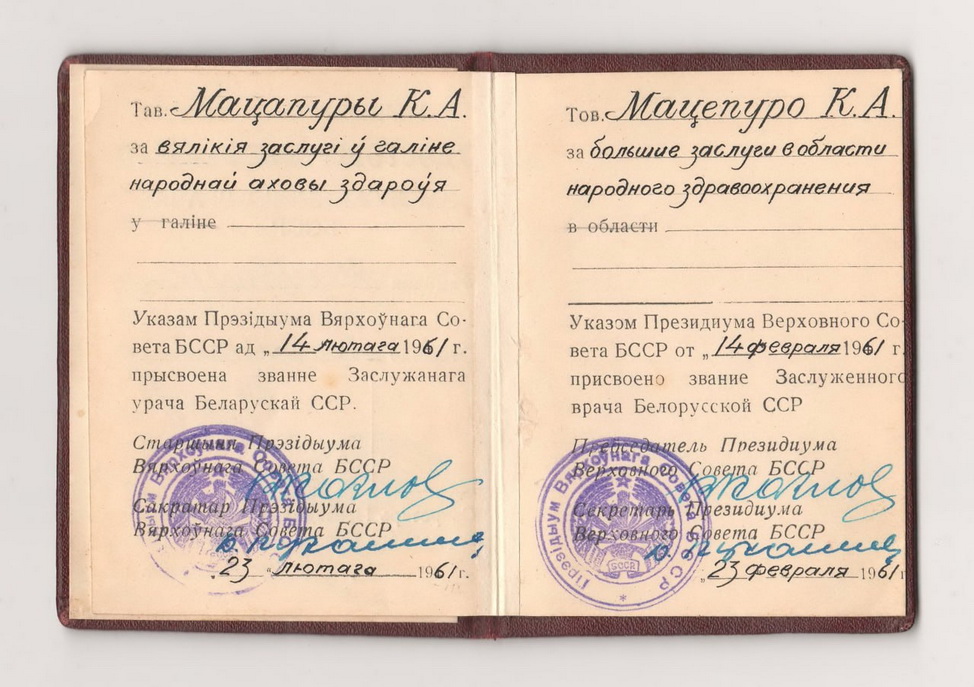 Тав. Мацапуры К. А.
за вялікія заслугі ў галіне
народнай аховы здароўя
у галіне
Указам Прэзідыума Вярхоўнага Со-
вета БССР ад „14 лютага 1961 г.
прысвоена званне Заслужанага
урача Беларускай ССР.
Старшыня Прэзідыума
Вярхоўнага Совета БССР
Сакратар Прэзідыума
Вярхоўнага Совета БССР
23 „ лютага 1961 г.
Тов. Мацепуро К. А.
за большие заслуги в области
народного здравоохранения
в области
Указом Президиума Верховного Со-
вета БССР от „14 февраля 1961 г.
присвоено звание Заслуженного
врача Белорусской ССР
Председатель Президиума
Верховного Совета БССР
Секретарь Президиума
Верховного Совета БССР
„23 февраля 1961 г.
Прэзідыум Вярхоўнага Совета БССР
БССР